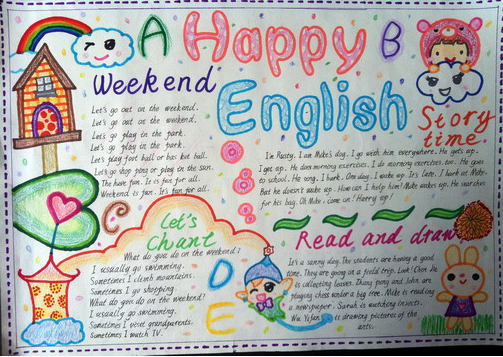 A Happy B
English
Weekend
Let's go out on the weekend.
Let's go out on the weekend.
Let's go play in the park.
Let's go play in the park.
Let's play foot ball or bas ket ball.
Let's go shop ping or play in the sun.
The have fun. It is fun for all.
Weekend is fun. It's fun for all.
Story
time
I'm Rusty. I am Mike's dog. I go with him everywhere. He gets up.
I get up. He does morning exercises. I do morning exercises, too. He goes
to school. He song. I bark. One day, I wake up. It's late. I bark at Mike.
But he doesn't wake up. How can I help him? Mike wakes up. He searches
for his bag. Oh Mike, come on! Hurry up!
C
Let's
Chant
What do you do on the weekend?
I usually go swimming.
Sometimes I climb mountains.
Sometimes I go shopping
What do you do on the weekend?
I usually go swimming.
Sometimes I visit grandparents.
Sometimes I watch TV.
D
E
Read and draw
It's a sunny day. The students are having a good
time. They are on a field trip. Look! Chen Jie
is collecting leaves. Zhang peng and John are
playing chess under a big tree. Mike is reading
a newspaper. Sarah is watching insects.
Wu Yifan is drawing pictures of the
ants.